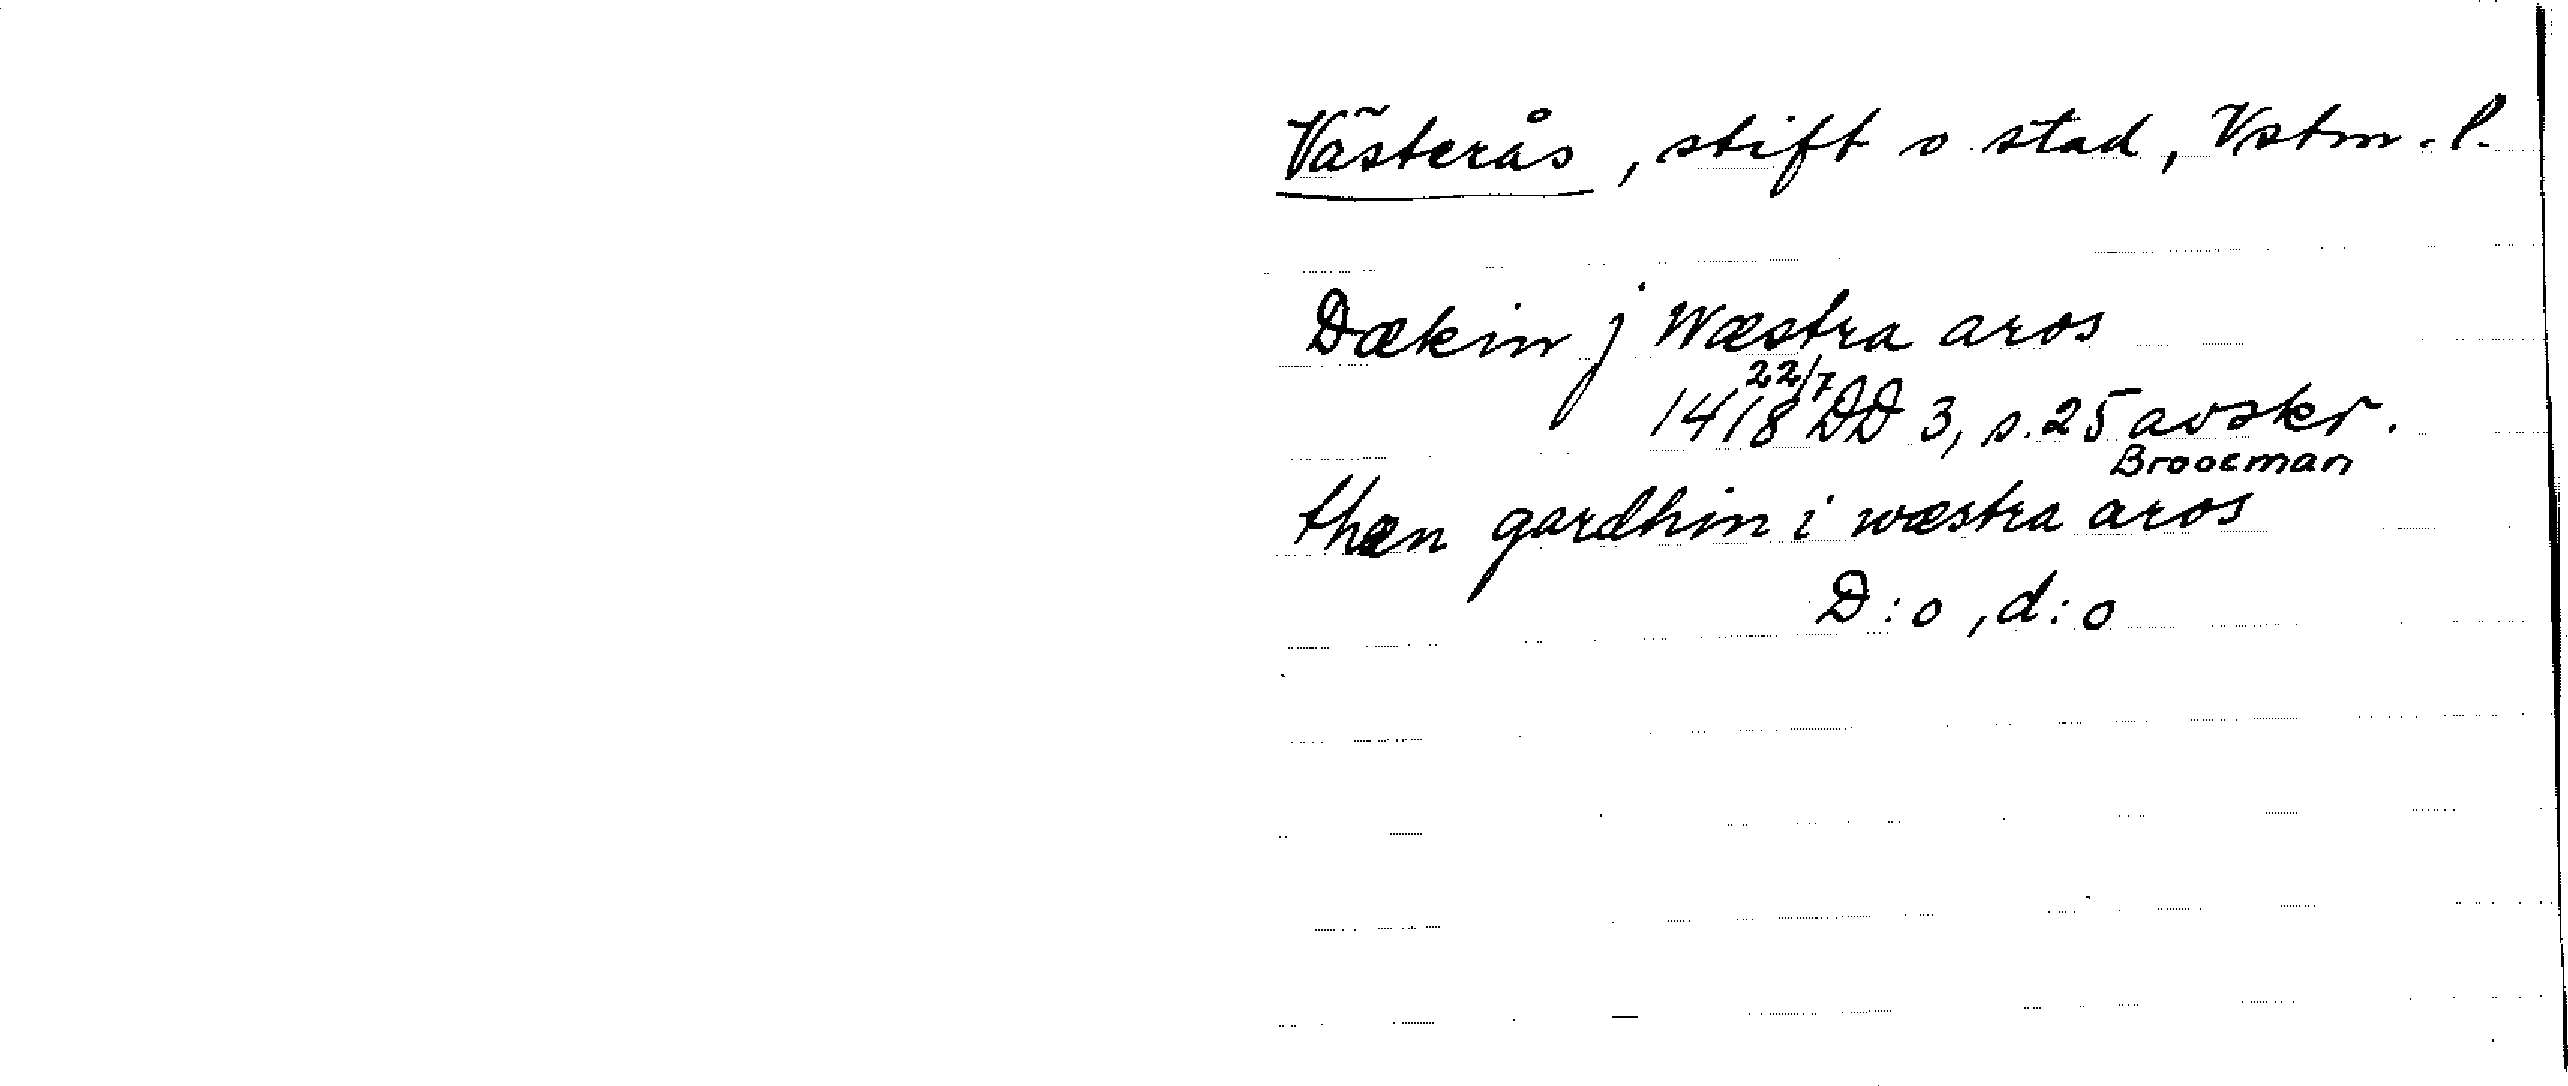 Västerås, stift o stad, Vstm. l.
Dækin j Wæstra aros
1418 22/7 DD 3, s. 25 avskr.
Brooeman
then gardhin i wæstra aros
D:o, d:o